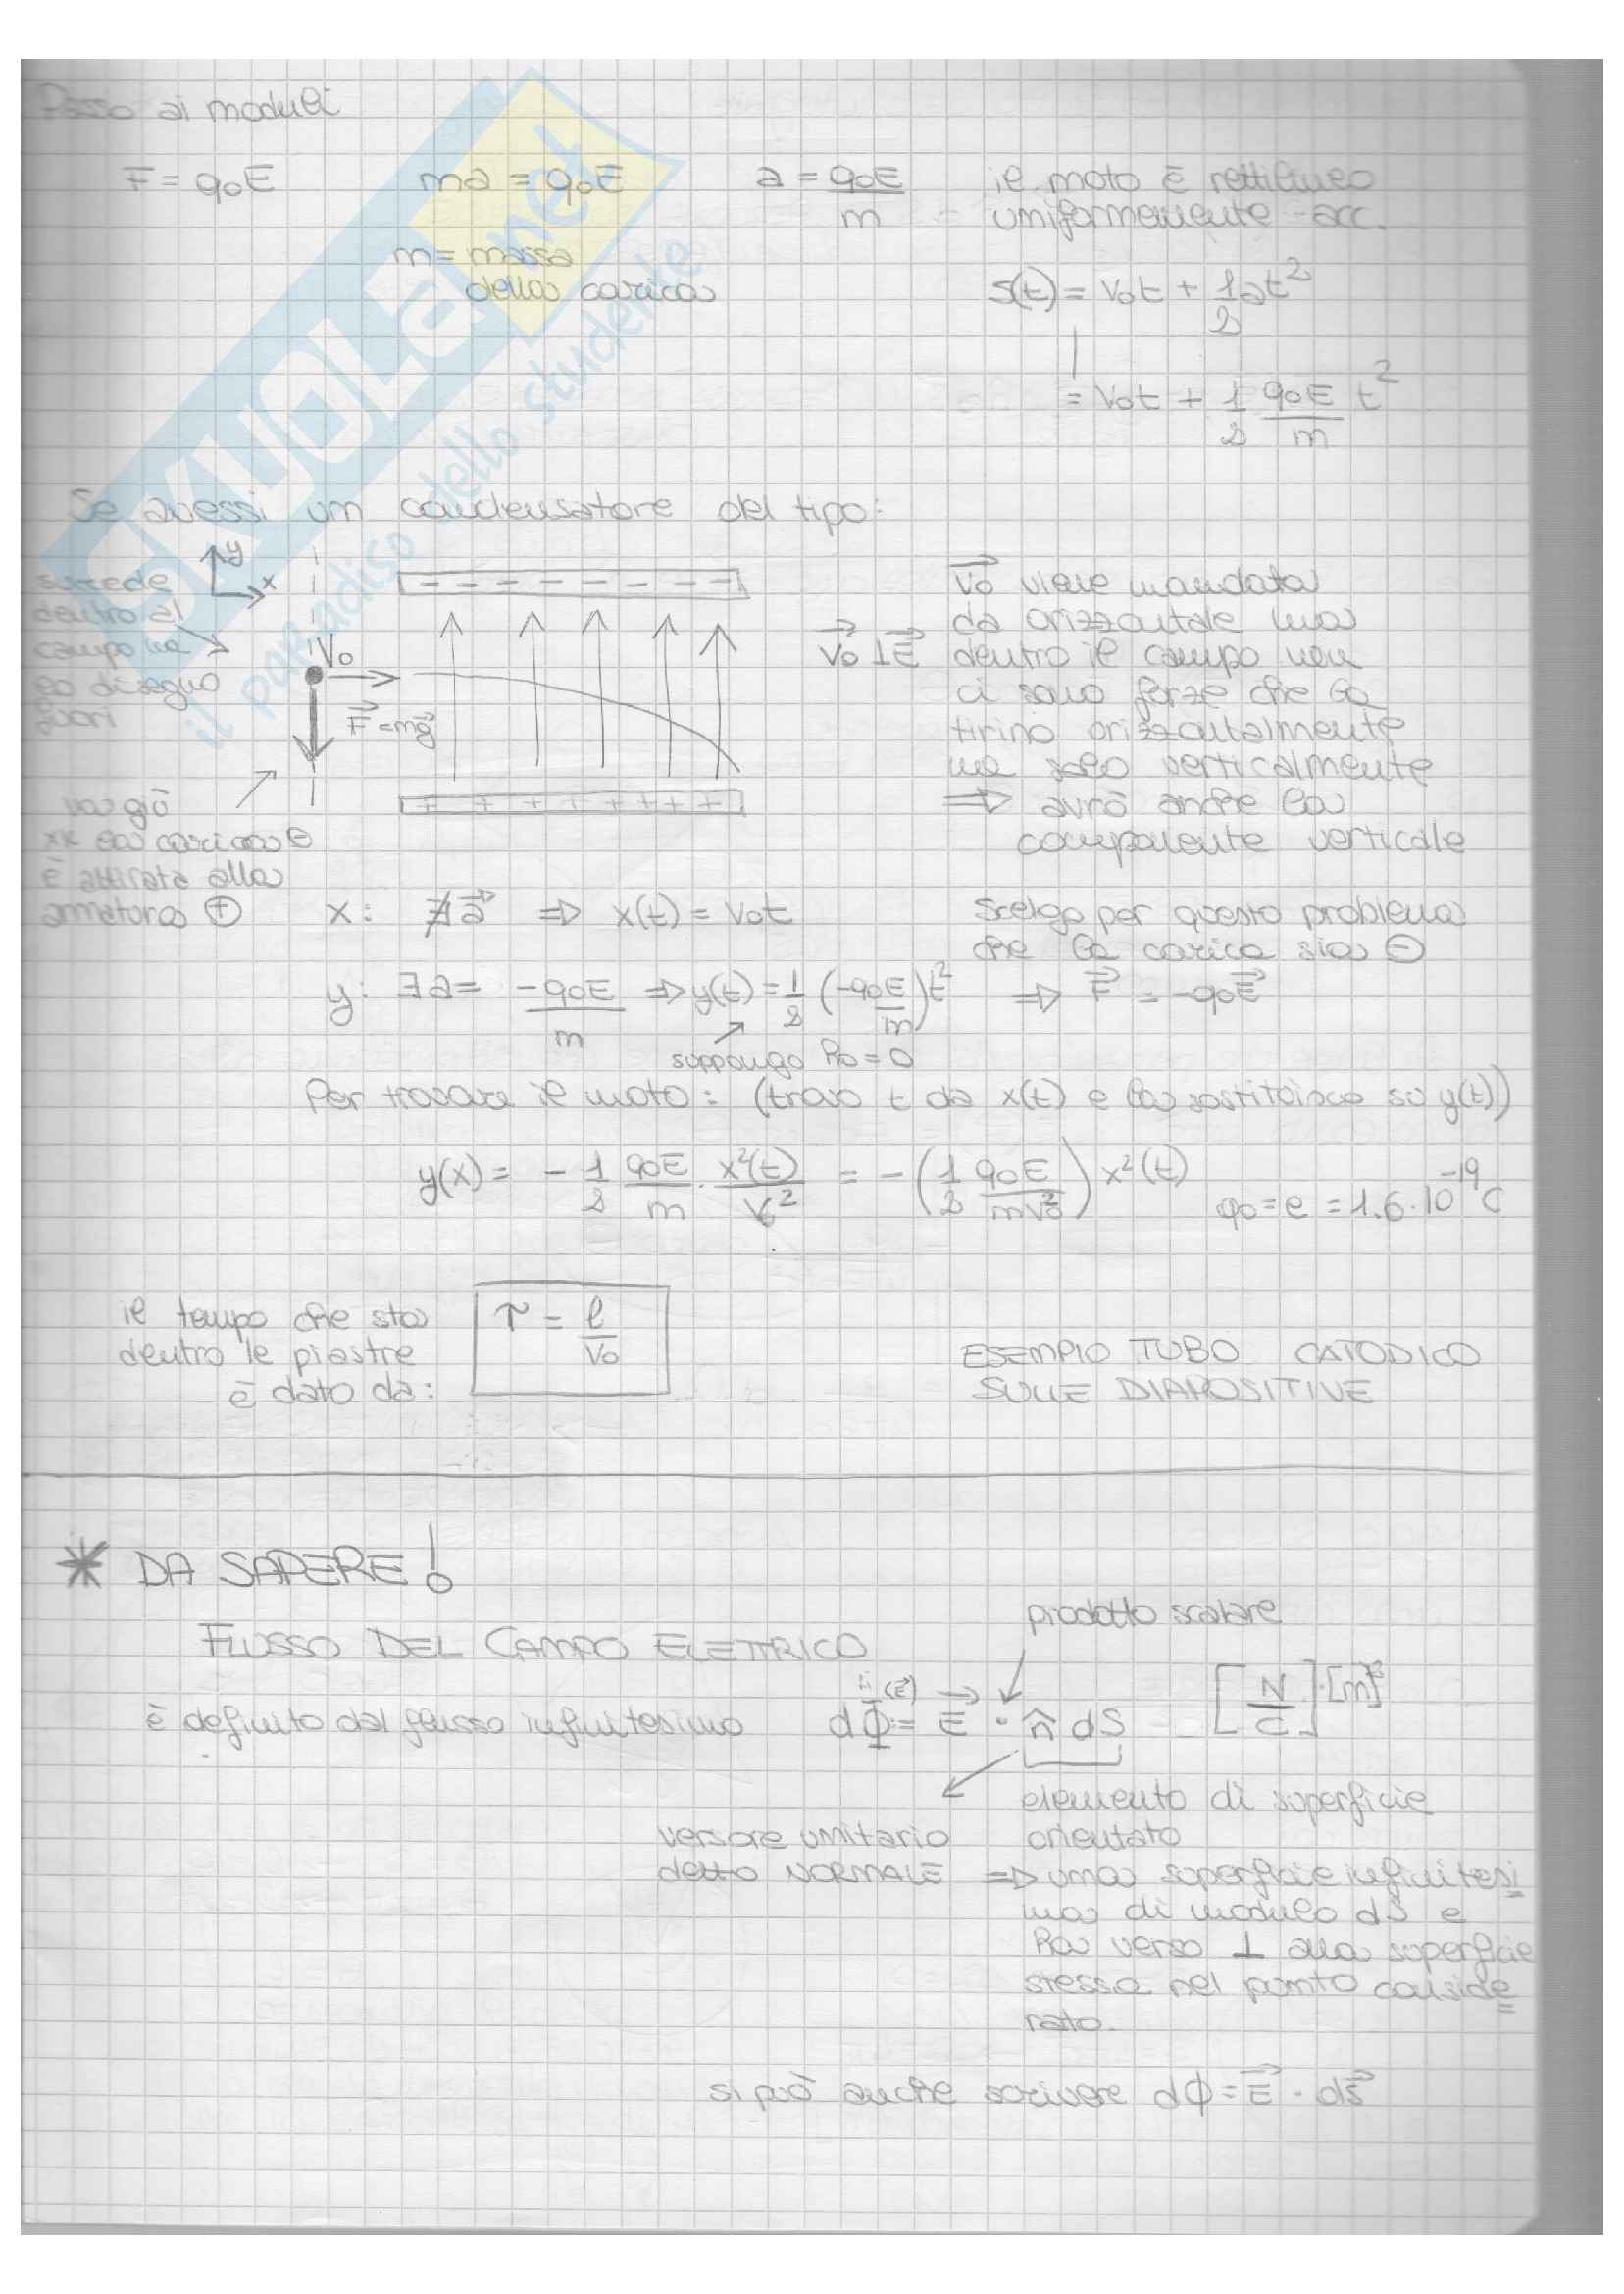 Passo ai moduli
F = q₀E    ma = q₀E    a = q₀E/m    il moto è rettilineo
uniformemente acc.
m = massa
della carica
S(t) = v₀t + 1/2 at²
= v₀t + 1/2 q₀E/m t²
SKUOLA.net
il paradiso dello studente
Se avessi un condensatore del tipo:
y
x
succede
dentro al
campo ma
lo disegno
fuori
V₀
F⃗ = mg⃗
− − − − − − − −
+ + + + + + + +
v⃗₀ ⊥ E⃗
v⃗₀ viene mandata
da orizzontale ma
dentro il campo non
ci sono forze che la
tirino orizzontalmente
ma solo verticalmente
⇒ avrò anche la
componente verticale
va giù
xk la carica ⊖
è attirata alla
armatura ⊕
x: ∄ a⃗ ⇒ x(t) = v₀t
Scelgo per questo problema
che la carica sia ⊖
y: ∃ a = −q₀E/m ⇒ y(t) = 1/2 (−q₀E/m) t²    ⇒ F⃗ = −q₀E⃗
suppongo h₀ = 0
Per trovare il moto: (trovo t da x(t) e la sostituisco su y(t))
y(x) = − 1/2 q₀E/m · x²(t)/v₀² = −(1/2 q₀E/mv₀²) x²(t)    q₀ = e = 1.6·10⁻¹⁹ C
il tempo che sta
dentro le piastre
è dato da:
τ = l/v₀
ESEMPIO TUBO CATODICO
SULLE DIAPOSITIVE
* DA SAPERE!
FLUSSO DEL CAMPO ELETTRICO
prodotto scalare
è definito dal flusso infinitesimo    dΦ(E⃗) = E⃗ · n̂ dS    [N/C]·[m]²
versore unitario
detto NORMALE
elemento di superficie
orientato
⇒ una superficie infinitesi
ma di modulo dS e
ha verso ⊥ alla superficie
stessa nel punto conside
rato.
si può anche scrivere dϕ = E⃗ · ds⃗